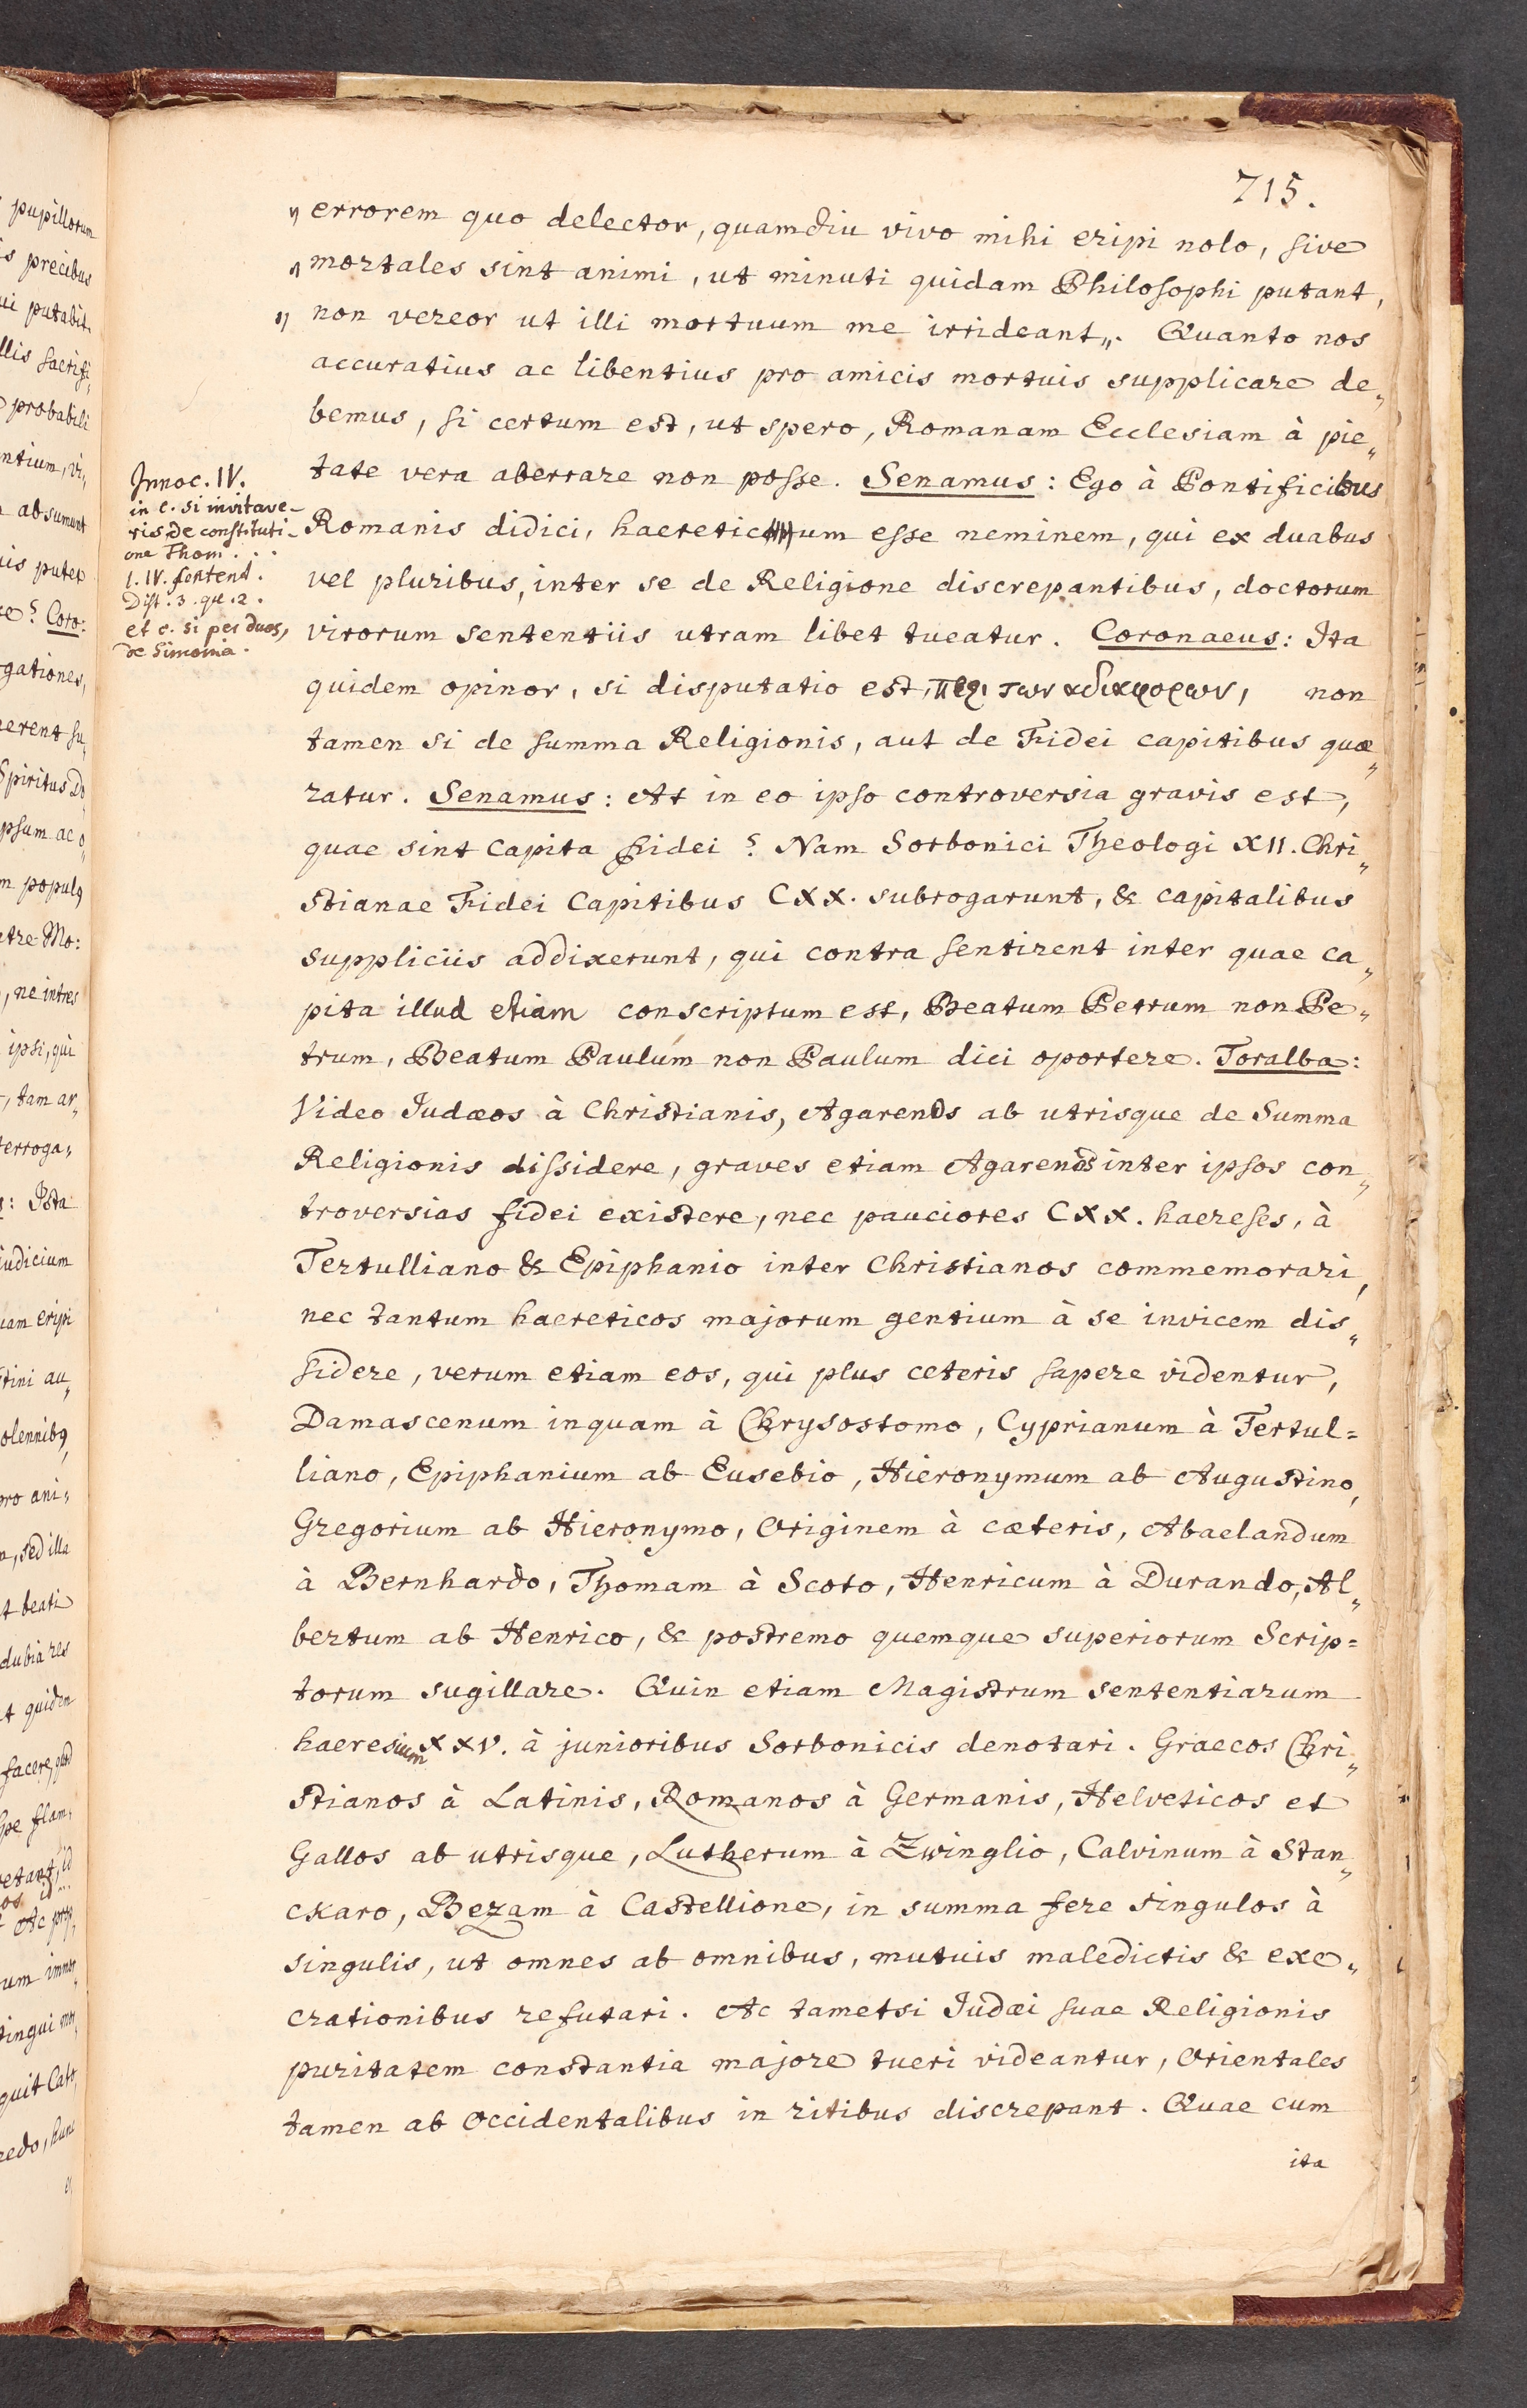 715.
„ errorem quo delector, quamdiu vivo mihi eripi nolo, sive
„ mortales sint animi, ut minuti quidam Philosophi putant,
„ non vereor ut illi mortuum me irrideant„. Quanto nos
accuratius ac libentius pro amicis mortuis supplicare de„
bemus, si certum est, ut spero, Romanam Ecclesiam à pie„
tate vera aberrare non posse. Senamus: Ego à Pontificibus
Romanis didici, haereticum esse neminem, qui ex duabus
vel pluribus, inter se de Religione discrepantibus, doctorum
virorum sententiis utram libet tueatur. Coronaeus: Ita
quidem opinor, si disputatio est, περι των αδιαφορων, non
tamen si de summa Religionis, aut de Fidei capitibus quæ„
ratur. Senamus: At in eo ipso controversia gravis est,
quae sint capita fidei? Nam Sorbonici Theologi XII. Chri„
stianae Fidei Capitibus CXX. subrogarunt, & capitalibus
suppliciis addixerunt, qui contra sentirent inter quae ca„
pita illud etiam conscriptum est, Beatum Petrum non Pe„
trum, Beatum Paulum non Paulum dici oportere. Toralba:
Video Iudæos à Christianis, Agarenos ab utrisque de Summa
Religionis dissidere, graves etiam Agarenos inter ipsos con„
troversias fidei existere, nec pauciores CXX. haereses, à
Tertulliano & Epiphanio inter Christianos commemorari,
nec tantum haereticos majorum gentium à se invicem dis„
sidere, verum etiam eos, qui plus ceteris sapere videntur,
Damascenum inquam à Chrysostomo, Cyprianum à Tertul=
liano, Epiphanium ab Eusebio, Hieronymum ab Augustino,
Gregorium ab Hieronymo, Originem à cæteris, Abaelandum
à Bernhardo, Thomam à Scoto, Henricum à Durando, Al„
bertum ab Henrico, & postremo quemque superiorum Scrip=
torum sugillare. Quin etiam Magistrum sententiarum
haeresium XXV. à junioribus Sorbonicis denotari. Graecos Chri„
stianos à Latinis, Romanos à Germanis, Helveticos et
Gallos ab utrisque, Lutherum à Zwinglio, Calvinum à Stan„
ckaro, Bezam à Castellione, in summa fere singulos à
singulis, ut omnes ab omnibus, mutuis maledictis & exe„
crationibus refutari. Ac tametsi Iudæi suae Religionis
puritatem constantia majore tueri videantur, Orientales
tamen ab Occidentalibus in ritibus discrepant. Quae cum
ita
Innoc. IV.
in c. si invitave-
ris de constituti-
one Thom. . .
l. IV. sentent.
Dist. 3. qu. 2.
et c. si per duos,
de Simonia.